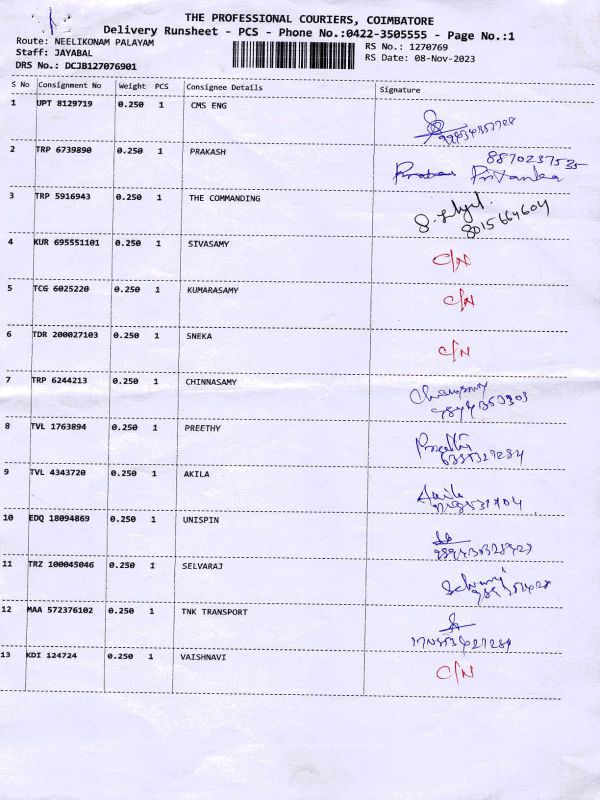 THE PROFESSIONAL COURIERS, COIMBATORE
Delivery Runsheet - PCS - Phone No.:0422-3505555 - Page No.:1
Route: NEELIKONAM PALAYAM RS No.: 1270769
Staff: JAYABAL RS Date: 08-Nov-2023
DRS No.: DCJB127076901
S No Consignment No Weight PCS Consignee Details Signature
1 UPT 8129719 0.250 1 CMS ENG
2 TRP 6739890 0.250 1 PRAKASH 8870237535
Priyanka
3 TRP 5916943 0.250 1 THE COMMANDING
8015664604
4 KUR 695551101 0.250 1 SIVASAMY C/N
5 TCG 6025220 0.250 1 KUMARASAMY C/N
6 TDR 200027103 0.250 1 SNEKA C/N
7 TRP 6244213 0.250 1 CHINNASAMY
8 TVL 1763894 0.250 1 PREETHY Preethi
9 TVL 4343720 0.250 1 AKILA Akila
10 EDQ 18094869 0.250 1 UNISPIN
11 TRZ 100045046 0.250 1 SELVARAJ Selvaraj
12 MAA 572376102 0.250 1 TNK TRANSPORT
13 KDI 124724 0.250 1 VAISHNAVI C/N